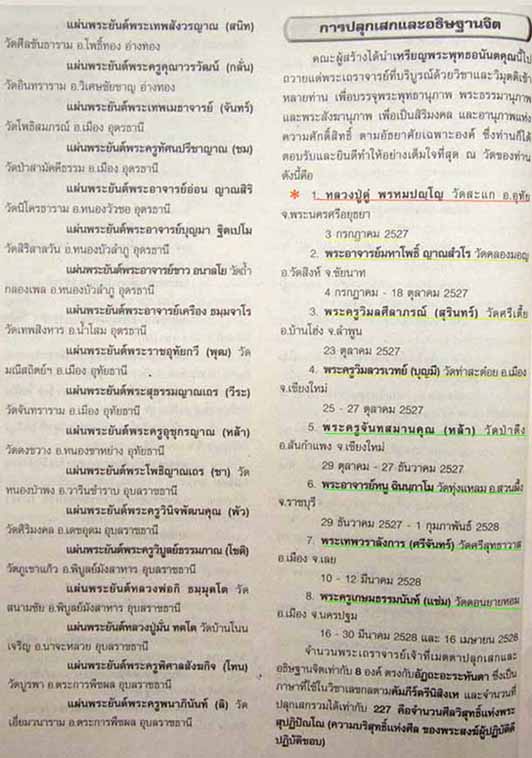 แผ่นพระยันต์พระเทพสังวรญาณ (สนิท)
วัดศีลขันธาราม อ.โพธิ์ทอง อ่างทอง
แผ่นพระยันต์พระครูคุณาวรวัฒน์ (กลั่น)
วัดอินทราราม อ.วิเศษชัยชาญ อ่างทอง
แผ่นพระยันต์พระเทพเมธาจารย์ (จันทร์)
วัดโพธิสมภรณ์ อ.เมือง อุดรธานี
แผ่นพระยันต์พระครูทัศนปรีชาญาณ (ชม)
วัดป่าสามัคคีธรรม อ.เมือง อุดรธานี
แผ่นพระยันต์พระอาจารย์อ่อน ญาณสิริ
วัดนิโครธาราม อ.หนองวัวซอ อุดรธานี
แผ่นพระยันต์พระอาจารย์บุญมา ฐิตเปโม
วัดสิริสาลวัน อ.หนองบัวลำภู อุดรธานี
แผ่นพระยันต์พระอาจารย์ขาว อนาลโย วัดถ้ำ
กลองเพล อ.หนองบัวลำภู อุดรธานี
แผ่นพระยันต์พระอาจารย์เครือง ธมฺมจาโร
วัดเทพสิงหาร อ.น้ำโสม อุดรธานี
แผ่นพระยันต์พระราชอุทัยกวี (พุฒ) วัด
มณีสถิตย์ฯ อ.เมือง อุทัยธานี
แผ่นพระยันต์พระสุธรรมญาณเถร (วีระ)
วัดจันทาราม อ.เมือง อุทัยธานี
แผ่นพระยันต์พระครูอุชุกรญาณ (หล้า)
วัดดงขวาง อ.หนองขาหย่าง อุทัยธานี
แผ่นพระยันต์พระโพธิญาณเถร (ชา) วัด
หนองป่าพง อ.วารินชำราบ อุบลราชธานี
แผ่นพระยันต์พระครูวินิจพัฒนคุณ (พัว)
วัดศิริมงคล อ.เดชอุดม อุบลราชธานี
แผ่นพระยันต์พระครูวิบูลย์ธรรมภาณ (โชติ)
วัดภูเขาแก้ว อ.พิบูลย์มังสาหาร อุบลราชธานี
แผ่นพระยันต์หลวงพ่อกิ ธมฺมุตโต วัด
สนามชัย อ.พิบูลย์มังสาหาร อุบลราชธานี
แผ่นพระยันต์หลวงปู่มั่น ทตโต วัดบ้านโนน
เจริญ อ.นาจะหลวย อุบลราชธานี
แผ่นพระยันต์พระครูพิศาลสังฆกิจ (โทน)
วัดบูรพา อ.ตระการพืชผล อุบลราชธานี
แผ่นพระยันต์พระครูพนาภินันท์ (ลิ) วัด
เยี่ยมวนาราม อ.ตระการพืชผล อุบลราชธานี
การปลุกเสกและอธิษฐานจิต
คณะผู้สร้างได้นำเหรียญพระพุทธอนันตคุณนี้ไป
ถวายแด่พระเถราจารย์ที่บริบูรณ์ด้วยวิชาและวิมุตติเจ้า
หลายท่าน เพื่อบรรจุพระพุทธานุภาพ พระธรรมานุภาพ
และพระสังฆานุภาพ เพื่อเป็นสิริมงคล และอานุภาพแห่ง
ความศักดิ์สิทธิ์ ตามอัธยาศัยเฉพาะองค์ ซึ่งท่านก็ได้
ตอบรับและยินดีทำให้อย่างเต็มใจที่สุด ณ วัดของท่าน
ดังนี้คือ
* 1. หลวงปู่ดู่ พรหมปญฺโญ วัดสะแก อ.อุทัย
จ.พระนครศรีอยุธยา
3 กรกฎาคม 2527
2. พระอาจารย์มหาโพธิ์ ญาณสํวโร วัดคลองมอญ
อ.วัดสิงห์ จ.ชัยนาท
4 กรกฎาคม - 18 ตุลาคม 2527
3. พระครูวิมลศีลาภรณ์ (สุรินทร์) วัดศรีเตี้ย
อ.บ้านโฮ่ง จ.ลำพูน
23 ตุลาคม 2527
4. พระครูวิมลวรเวทย์ (บุญมี) วัดท่าสะต๋อย อ.เมือง
จ.เชียงใหม่
25 - 27 ตุลาคม 2527
5. พระครูจันทสมานคุณ (หล้า) วัดป่าตึง
อ.สันกำแพง จ.เชียงใหม่
29 ตุลาคม - 27 ธันวาคม 2527
6. พระอาจารย์หนู ฉินนกาโม วัดทุ่งแหลม อ.สวนผึ้ง
จ.ราชบุรี
29 ธันวาคม 2527 - 1 กุมภาพันธ์ 2528
7. พระเทพวราลังการ (ศรีจันทร์) วัดศรีสุทธาวาส
อ.เมือง จ.เลย
10 - 12 มีนาคม 2528
8. พระครูเกษมธรรมนันท์ (แช่ม) วัดดอนยายหอม
อ.เมือง จ.นครปฐม
16 - 30 มีนาคม 2528 และ 16 เมษายน 2528
จำนวนพระเถราจารย์เจ้าที่เมตตาปลุกเสกและ
อธิษฐานจิตเท่ากับ 8 องค์ ตรงกับอัฏฐะอะระหันตา ซึ่งเป็น
ภาษาที่ใช้ในวิชาเลขกลตามคัมภีร์ตรีนิสิงเห และจำนวนที่
ปลุกเสกรวมได้เท่ากับ 227 คือจำนวนศีลวิสุทธิ์แห่งพระ
สุปฏิปัณโณ (ความบริสุทธิ์แห่งศีล ของพระสงฆ์ผู้ปฏิบัติดี
ปฏิบัติชอบ)